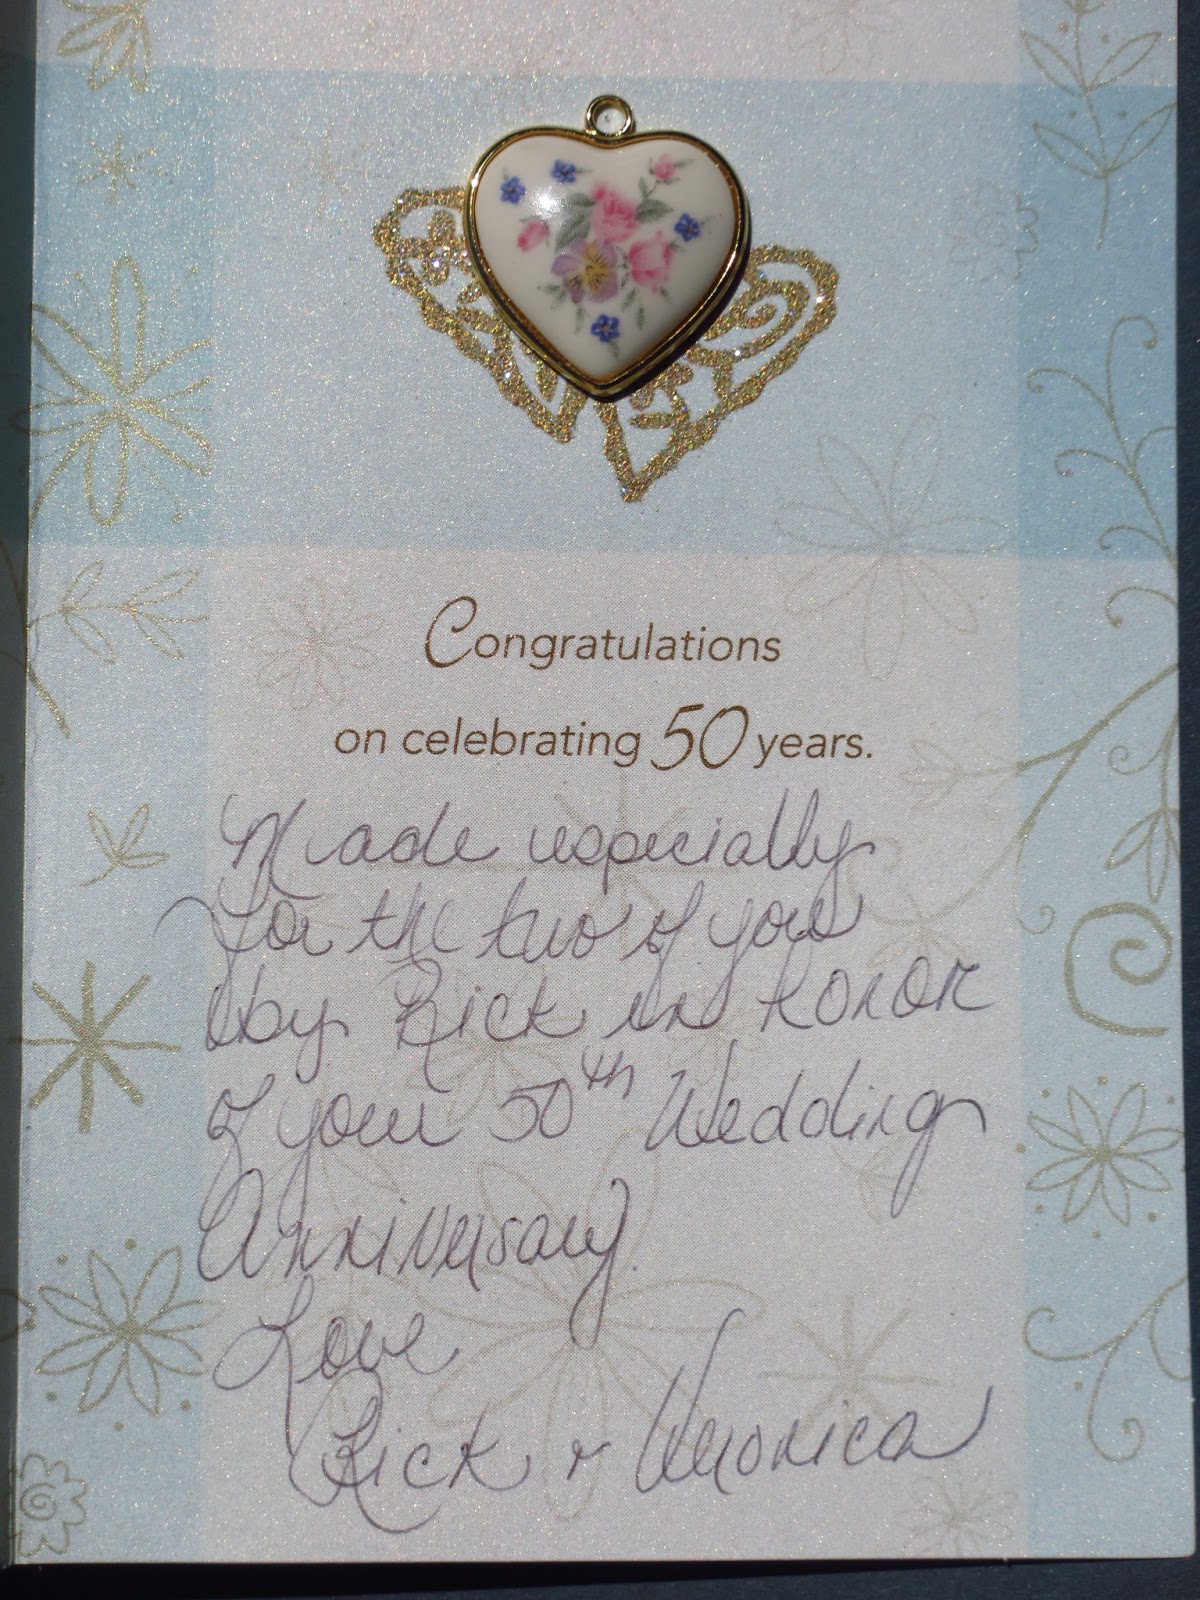 Congratulations
on celebrating 50 years.
Made especially
for the two of you
by Rick in honor
of your 50th Wedding
Anniversary.
Love
Rick & Veronica